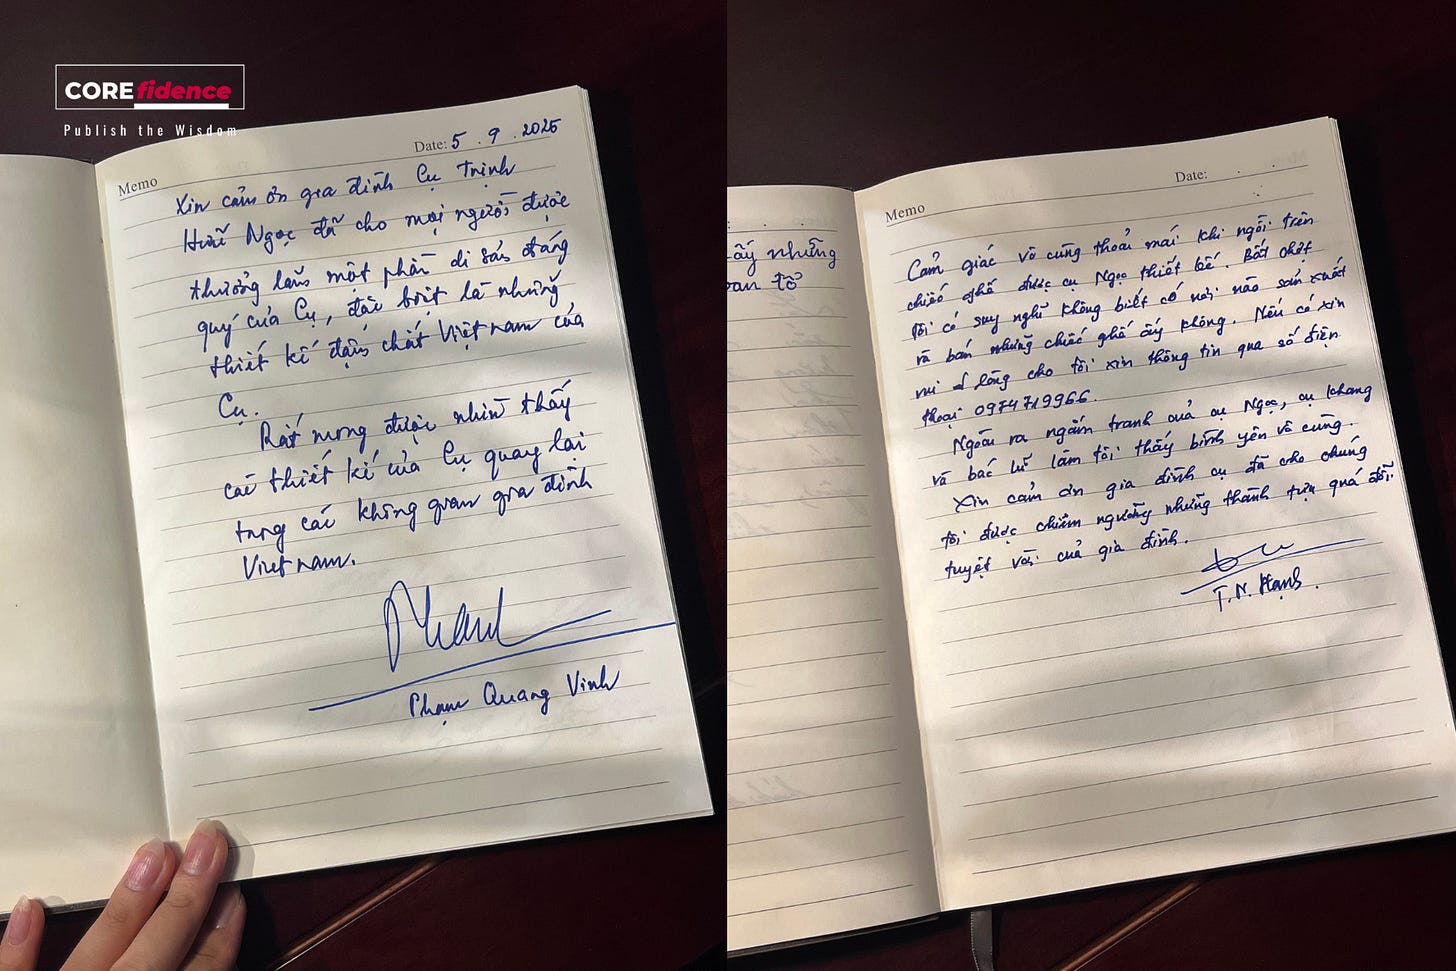 COREfidence
Publish the Wisdom
Memo
Date: 5 . 9 . 2025
Xin cảm ơn gia đình Cụ Trịnh
Hữu Ngọc đã cho mọi người được
thưởng lãm một phần di sản đáng
quý của Cụ, đặc biệt là những
thiết kế đậm chất Việt nam của
Cụ.
Rất mong được nhìn thấy
các thiết kế của Cụ quay lại
trong các không gian gia đình
Việt nam.
Phạm Quang Vinh
ấy những
Memo
Date:
Cảm giác vô cùng thoải mái khi ngồi trên
chiếc ghế được cụ Ngọc thiết kế. Bất chợt
tôi có suy nghĩ không biết có nơi nào sản xuất
và bán những chiếc ghế ấy không. Nếu có xin
vui lòng cho tôi xin thông tin qua số điện
thoại 0974719966.
Ngoài ra ngắm tranh của cụ Ngọc, cụ Khang
và bác Lữ làm tôi thấy bình yên vô cùng.
Xin cảm ơn gia đình cụ đã cho chúng
tôi được chiêm ngưỡng những thành tựu quá đỗi
tuyệt vời của gia đình.
T.N. Hạnh.